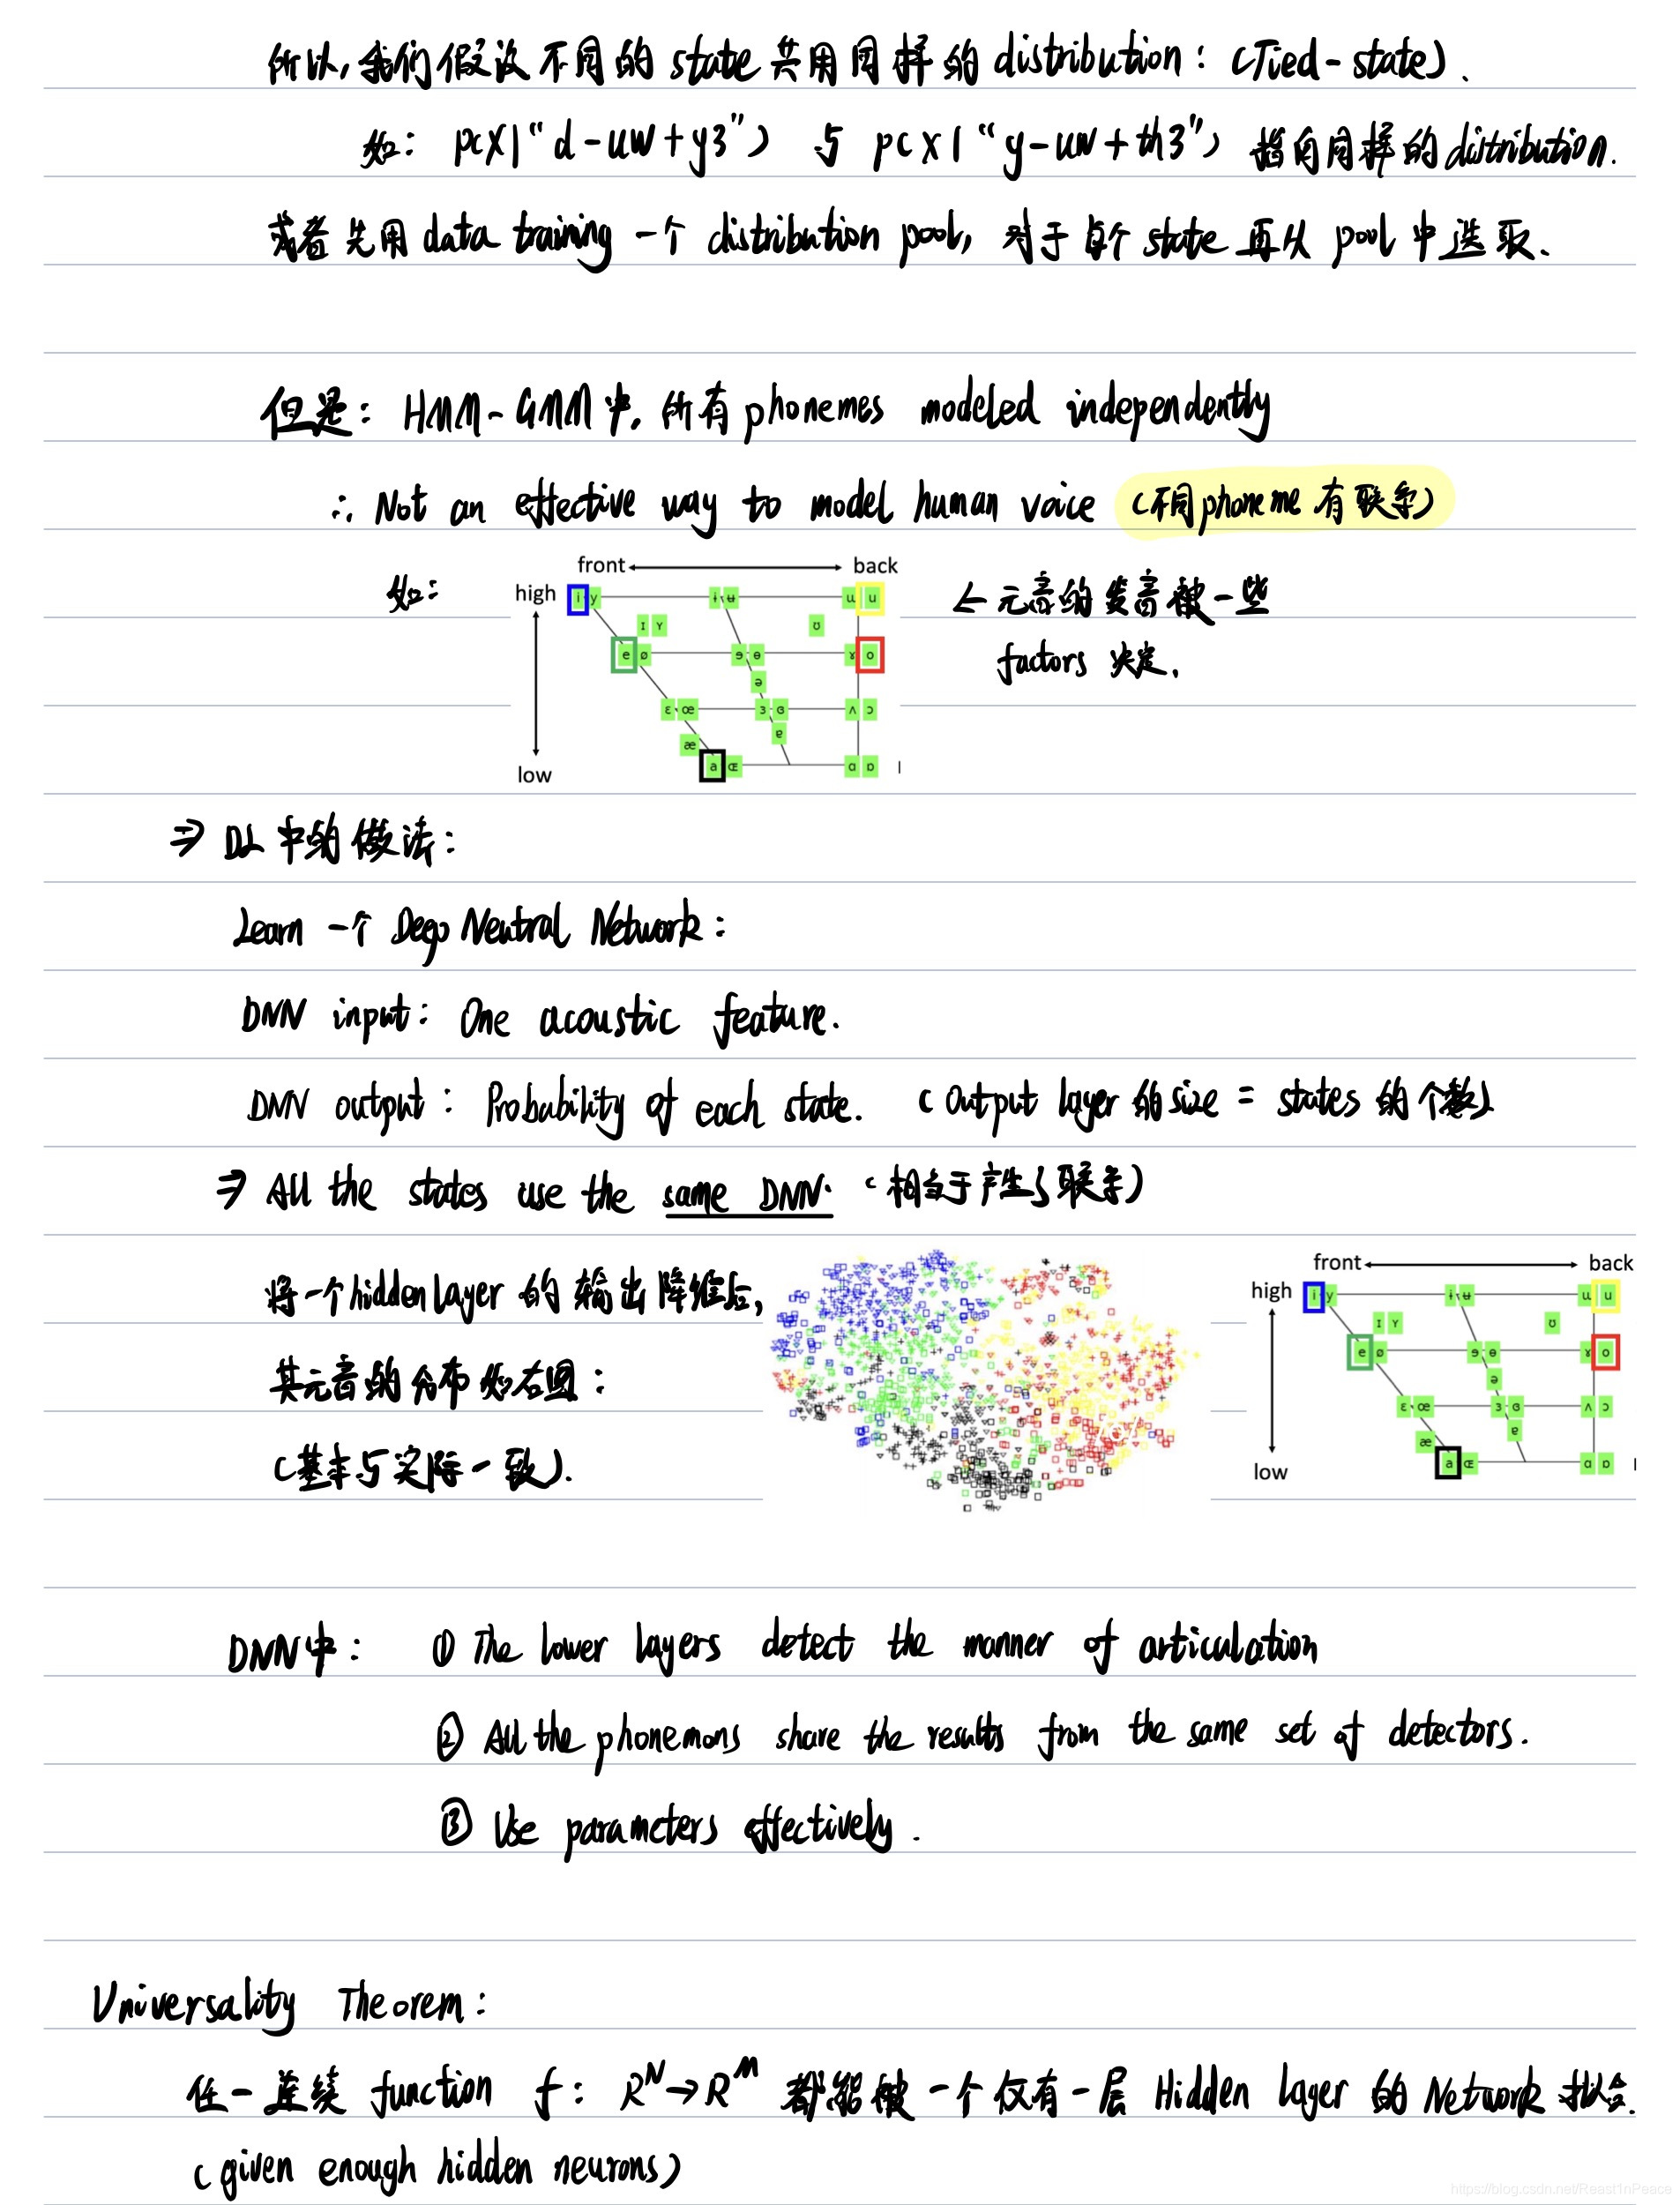 所以,我们假设不同的 state 共用同样的 distribution: (Tied-state).
如: p(x|"d-uw+y3") 与 p(x|"y-uw+th3") 指向同样的 distribution.
或者先用 data training 一个 distribution pool, 对于每个 state 再从 pool 中选取.
但是: HMM-GMM中, 所有 phonemes modeled independently
∴ Not an effective way to model human voice (不同phoneme 有联系)
如:
front back
high i y ɨ ʉ ɯ u
ɪ ʏ ʊ
e ø ɘ ɵ ɤ o
ə
ɛ œ ɜ ɞ ʌ ɔ
æ ɐ
a ɶ ɑ ɒ
low
← 元音的发音被一些
factors 决定.
⇒ DL 中的做法:
Learn 一个 Deep Neutral Network:
DNN input: One acoustic feature.
DNN output: Probability of each state. (Output layer 的size = states 的个数)
⇒ All the states use the same DNN. (相当于产生了联系)
将一个hidden layer 的 输出降维后,
其元音的分布如右图:
(基本与实际一致).
front back
high i y ɨ ʉ ɯ u
ɪ ʏ ʊ
e ø ɘ ɵ ɤ o
ə
ɛ œ ɜ ɞ ʌ ɔ
æ ɐ
a ɶ ɑ ɒ
low
DNN中: ① The lower layers detect the manner of articulation
② All the phonemons share the results from the same set of detectors.
③ Use parameters effectively.
Universality Theorem:
任一连续 function f: R^N→R^M 都能被一个仅有一层 Hidden layer 的 Network 拟合.
(given enough hidden neurons)
https://blog.csdn.net/Reast1nPeace